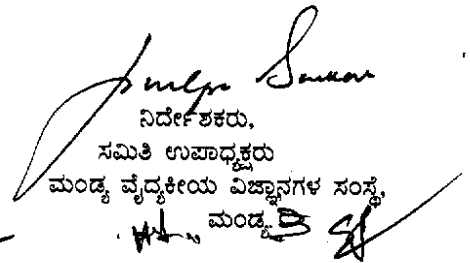 ನಿರ್ದೇಶಕರು,
ಸಮಿತಿ ಉಪಾಧ್ಯಕ್ಷರು
ಮಂಡ್ಯ ವೈದ್ಯಕೀಯ ವಿಜ್ಞಾನಗಳ ಸಂಸ್ಥೆ,
ಮಂಡ್ಯ